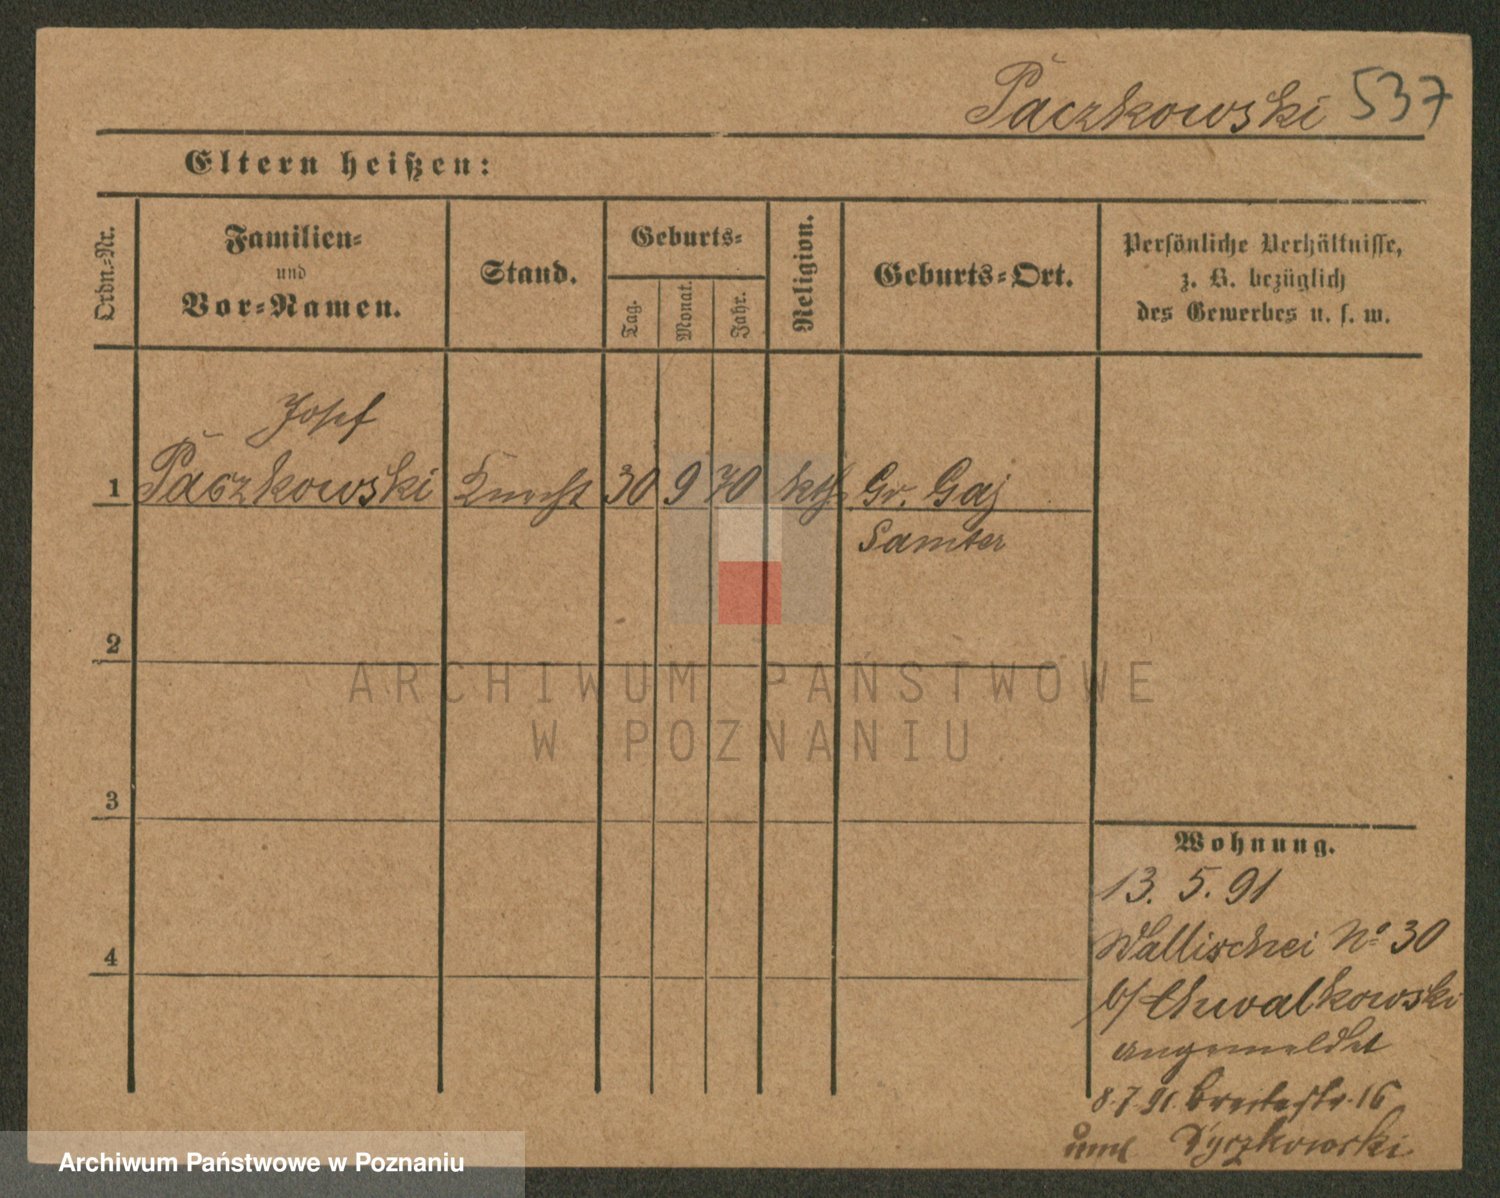 Paczkowski 537
Eltern heißen:
Ordn.-Nr.
Familien-
und
Vor-Namen.
Stand.
Geburts-
Tag.
Monat.
Jahr.
Religion.
Geburts-Ort.
Persönliche Verhältnisse,
z. B. bezüglich
des Gewerbes u. s. w.
Josef
1 Paczkowski Knecht 30 9 70 kth Gr. Gaj
Samter
2
3
4
Wohnung.
13. 5. 91
Wallischei No 30
b/ Chwalkowski
angemeldet
8.7.91. Breitestr. 16
Dyczkowski
ARCHIWUM PAŃSTWOWE
W POZNANIU
Archiwum Państwowe w Poznaniu